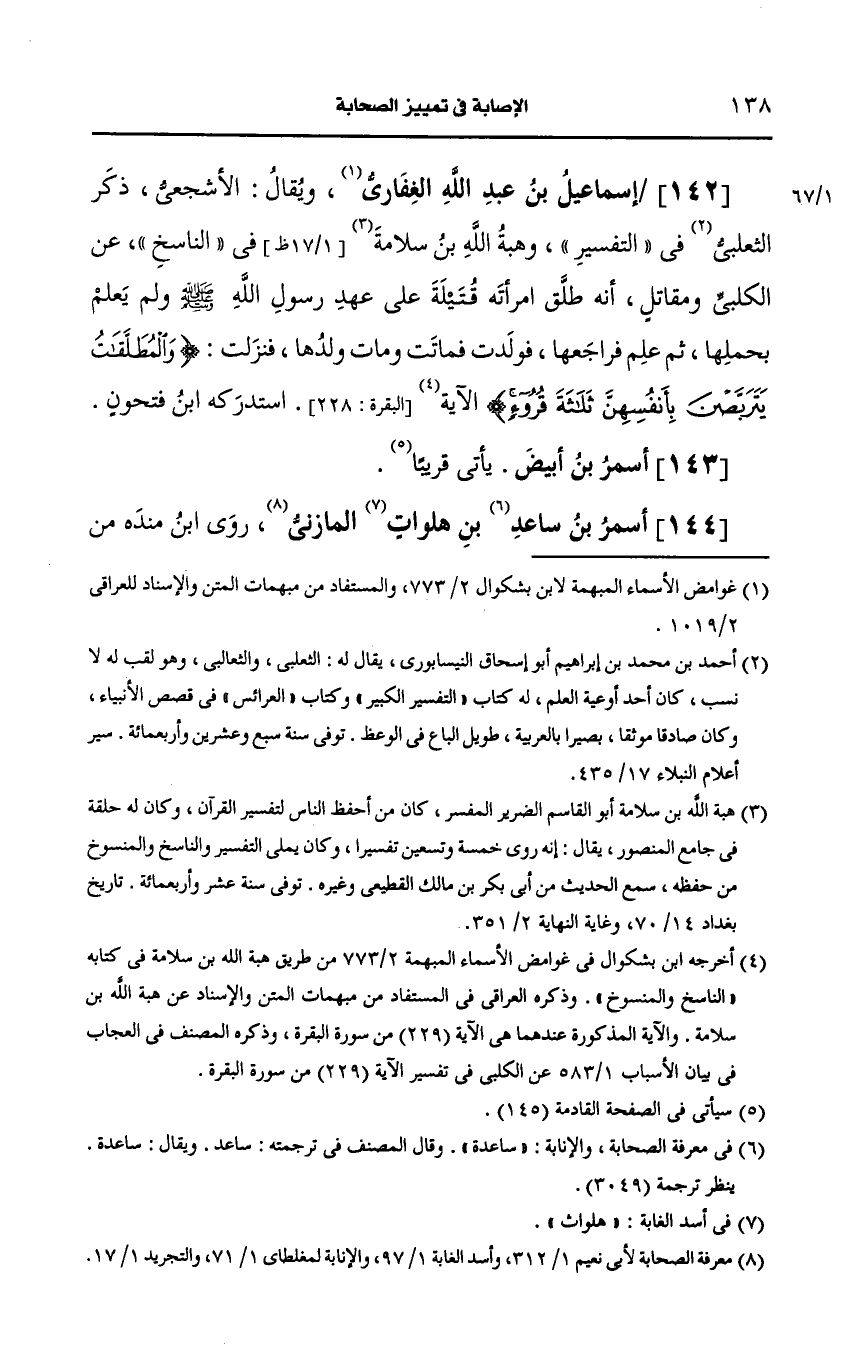 ١٣٨ الإصابة فى تمييز الصحابة
٦٧/١ [١٤٢] /إسماعيلُ بنُ عبدِ اللَّهِ الغِفَارىُّ(١)، ويُقالُ : الأشجعىُّ ، ذكَر
الثعلبىُّ(٢) فى « التفسيرِ » ، وهبةُ اللَّهِ بنُ سلامةَ(٣) [١٧/١ظ] فى « الناسخِ »، عن
الكلبىِّ ومقاتلٍ ، أنه طلَّق امرأتَه قُتَيْلَةَ على عهدِ رسولِ اللَّهِ ﷺ ولم يَعلمْ
بحملِها ، ثم علِم فراجَعها ، فولَدت فماتَت ومات ولدُها ، فنزَلت : ﴿ وَٱلْمُطَلَّقَٰتُ
يَتَرَبَّصْنَ بِأَنفُسِهِنَّ ثَلَٰثَةَ قُرُوٓءٍۚ ﴾ الآية(٤) [البقرة : ٢٢٨] . استدرَكه ابنُ فتحونٍ .
[١٤٣] أسمرُ بنُ أبيضَ . يأتى قريبًا(٥) .
[١٤٤] أسمرُ بنُ ساعدِ(٦) بنِ هلواتٍ(٧) المازنىُّ(٨)، روَى ابنُ مندَه من
(١) غوامض الأسماء المبهمة لابن بشكوال ٢/ ٧٧٣، والمستفاد من مبهمات المتن والإسناد للعراقى
١٠١٩/٢ .
(٢) أحمد بن محمد بن إبراهيم أبو إسحاق النيسابورى ، يقال له : الثعلبى ، والثعالبى ، وهو لقب له لا
نسب ، كان أحد أوعية العلم ، له كتاب « التفسير الكبير » وكتاب « العرائس » فى قصص الأنبياء ،
وكان صادقا موثقا ، بصيرا بالعربية ، طويل الباع فى الوعظ . توفى سنة سبع وعشرين وأربعمائة . سير
أعلام النبلاء ١٧/ ٤٣٥.
(٣) هبة اللَّه بن سلامة أبو القاسم الضرير المفسر ، كان من أحفظ الناس لتفسير القرآن ، وكان له حلقة
فى جامع المنصور ، يقال : إنه روى خمسة وتسعين تفسيرا ، وكان يملى التفسير والناسخ والمنسوخ
من حفظه ، سمع الحديث من أبى بكر بن مالك القطيعى وغيره . توفى سنة عشر وأربعمائة . تاريخ
بغداد ١٤/ ٧٠، وغاية النهاية ٢/ ٣٥١.
(٤) أخرجه ابن بشكوال فى غوامض الأسماء المبهمة ٧٧٣/٢ من طريق هبة الله بن سلامة فى كتابه
« الناسخ والمنسوخ » . وذكره العراقى فى المستفاد من مبهمات المتن والإسناد عن هبة اللَّه بن
سلامة . والآية المذكورة عندهما هى الآية (٢٢٩) من سورة البقرة ، وذكره المصنف فى العجاب
فى بيان الأسباب ٥٨٣/١ عن الكلبى فى تفسير الآية (٢٢٩) من سورة البقرة .
(٥) سيأتى فى الصفحة القادمة (١٤٥) .
(٦) فى معرفة الصحابة ، والإنابة : « ساعدة » . وقال المصنف فى ترجمته : ساعد . ويقال : ساعدة .
ينظر ترجمة (٣٠٤٩) .
(٧) فى أسد الغابة : « هلواث » .
(٨) معرفة الصحابة لأبى نعيم ١/ ٣١٢، وأسد الغابة ٩٧/١، والإنابة لمغلطاى ١/ ٧١، والتجريد ١/ ١٧.